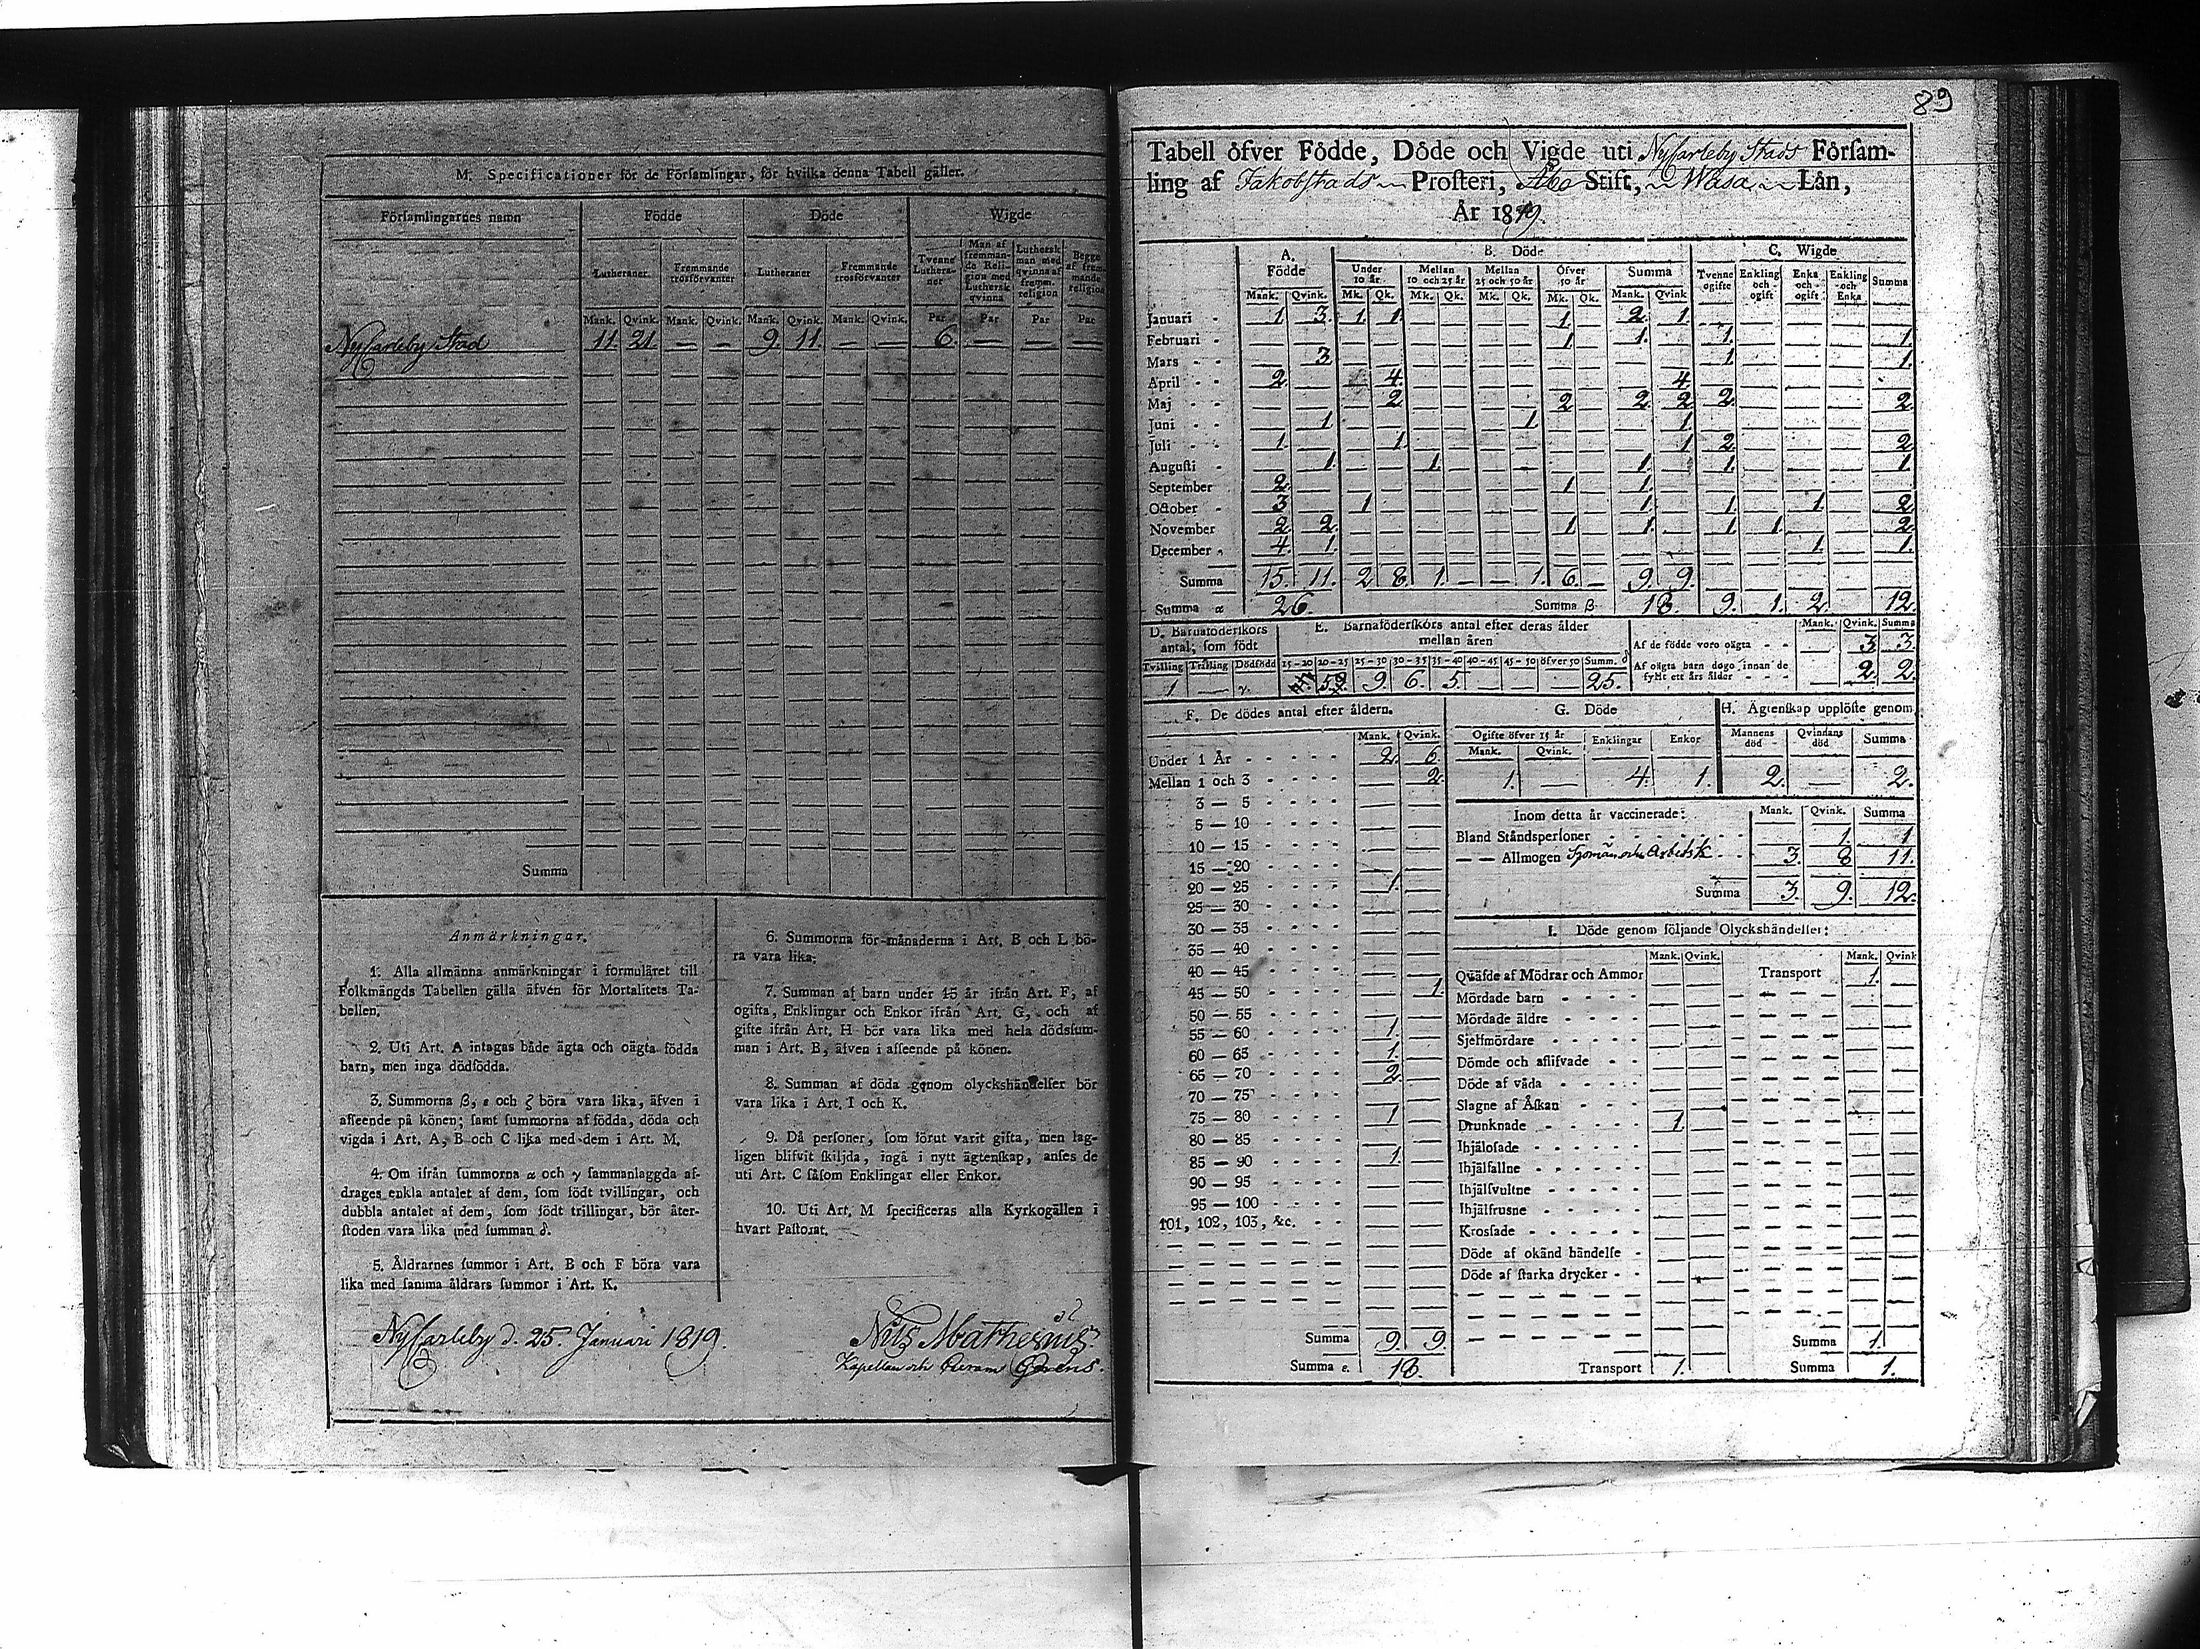 M. Specificationer för de Församlingar, för hvilka denna Tabell gäller.
Församlingarnes namn Födde Döde Wigde
Lutheraner. Fremmande trosförvanter Lutheraner Fremmande trosförvanter Tvenne Lutheraner Man af fremmande Religion med Luthersk qvinna Luthersk man med qvinna af fremm. religion Begge af fremmande religion
Mank. Qvink. Mank. Qvink. Mank. Qvink. Mank. Qvink. Par Par Par Par
NyCarleby Stad 11. 21. — — 9. 11. — — 6. — — —
Summa
Anmärkningar.
1. Alla allmänna anmärkningar i formuläret till
Folkmängds Tabellen gälla äfven för Mortalitets Ta-
bellen.
2. Uti Art. A intagas både ägta och oägta födda
barn, men inga dödfödda.
3. Summorna β, ε och ζ böra vara lika, äfven i
afseende på könen; samt summorna af födda, döda och
vigda i Art. A, B och C lika med dem i Art. M.
4. Om ifrån summorna α och γ sammanlaggda af-
drages enkla antalet af dem, som födt tvillingar, och
dubbla antalet af dem, som födt trillingar, bör åter-
stoden vara lika med summan δ.
5. Åldrarnes summor i Art. B och F böra vara
lika med samma åldrars summor i Art. K.
6. Summorna för månaderna i Art. B och L bö-
ra vara lika.
7. Summan af barn under 15 år ifrån Art. F, af
ogifta, Enklingar och Enkor ifrån Art. G, och af
gifte ifrån Art. H bör vara lika med hela dödssum-
man i Art. B, äfven i afseende på könen.
8. Summan af döda genom olyckshändelser bör
vara lika i Art. I och K.
9. Då personer, som förut varit gifta, men lag-
ligen blifvit skiljda, ingå i nytt ägtenskap, anses de
uti Art. C såsom Enklingar eller Enkor.
10. Uti Art. M specificeras alla Kyrkogällen i
hvart Pastorat.
NyCarleby d. 25. Januari 1819.
Nils Mathesius
Kapellan och
89
Tabell öfver Födde, Döde och Vigde uti NyCarleby Stads Församling
ling af Jakobstads Prosteri, Åbo Stift, Wasa Län,
År 1819.
A. Födde B. Döde C. Wigde
Under 10 år Mellan 10 och 25 år Mellan 25 och 50 år Öfver 50 år Summa Tvenne ogifte Enkling och ogift Enka och ogift Enkling och Enka Summa
Mank. Qvink. Mk. Qk. Mk. Qk. Mk. Qk. Mk. Qk. Mank. Qvink
Januari 1. 3. 1. 1. — — — — 1. — 2. 1. — — — — —
Februari — — — — — — — — 1. — 1. — 1. — — — 1.
Mars — 3. — — — — — — — — — — 1. — — — 1.
April 2. — — 4. — — — — — — — 4. — — — — —
Maj — — — 2. — — — — 2. — 2. 2. 2. — — — 2.
Juni — 1. — — — — — 1. — — — 1. — — — — —
Juli 1. — — 1. — — — — — — — 1. 2. — — — 2.
Augusti — 1. — — 1. — — — — — 1. — 1. — — — 1.
September 2. — — — — — — — 1. — 1. — — — — — —
October 3. — 1. — — — — — — — 1. — 1. — 1. — 2.
November 2. 2. — — — — — — 1. — 1. — 1. 1. — — 2.
December 4. 1. — — — — — — — — — — — — 1. — 1.
Summa 15. 11. 2. 8. 1. — — 1. 6. — 9. 9.
Summa α 26. Summa β 18. 9. 1. 2. 12.
D. Barnaföderskors antal, som födt E. Barnaföderskors antal efter deras ålder mellan åren Mank. Qvink. Summa
Af de födde voro oägta — 3. 3.
Tvilling Trilling Dödfödd 15-20 20-25 25-30 30-35 35-40 40-45 45-50 öfver 50 Summ. δ
Af oägta barn dogo innan de fyllt ett års ålder — 2. 2.
1 — 9. 6. 5. — — — 25.
F. De dödes antal efter åldern. G. Döde H. Ägtenskap upplöste genom
Mank. Qvink. Ogifte öfver 15 år Enklingar Enkor Mannens död Qvindans död Summa
Mank. Qvink.
1. — 4. 1. 2. — 2.
Under 1 År 2. 6.
Mellan 1 och 3 — 2.
3 — 5 — —
5 — 10 — —
10 — 15 — —
15 — 20 — —
20 — 25 1. —
25 — 30 — —
30 — 35 — —
35 — 40 — —
40 — 45 — —
45 — 50 — 1.
50 — 55 — —
55 — 60 1. —
60 — 65 1. —
65 — 70 2. —
70 — 75 — —
75 — 80 1. —
80 — 85 — —
85 — 90 1. —
90 — 95 — —
95 — 100 — —
101, 102, 103, &c. — —
Summa 9. 9.
Summa ε. 18.
Inom detta år vaccinerade: Mank. Qvink. Summa
Bland Ståndspersoner — 1. 1.
— — Allmogen Sjömän och Arbetsk. 3. 8. 11.
Summa 3. 9. 12.
I. Döde genom följande Olyckshändelser:
Mank. Qvink. Mank. Qvink
Qväfde af Mödrar och Ammor — — Transport 1. —
Mördade barn — —
Mördade äldre — —
Sjelfmördare — —
Dömde och aflifvade — —
Döde af våda — —
Slagne af Åskan — —
Drunknade 1. —
Ihjälosade — —
Ihjälfallne — —
Ihjälsvultne — —
Ihjälfrusne — —
Krossade — —
Döde af okänd händelse — —
Döde af starka drycker — —
Summa 1. —
Transport 1. — Summa 1.